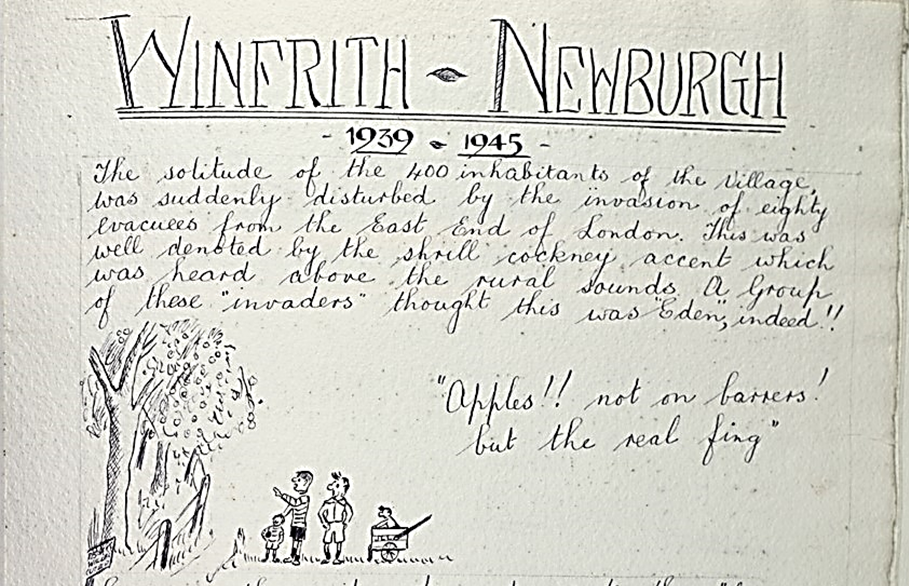 WINFRITH - NEWBURGH
- 1939 - 1945 -
The solitude of the 400 inhabitants of the village,
was suddenly disturbed by the invasion of eighty
evacuees from the East End of London. This was
well denoted by the shrill cockney accent which
was heard above the rural sounds. A Group
of these "invaders" thought this was "Eden", indeed!!
"Apples!! not on barrers!
but the real fing"